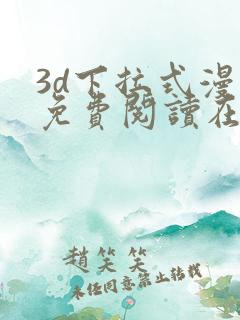 3d下拉式漫
免費閱讀在
趙笑笑
未经同意禁止转载